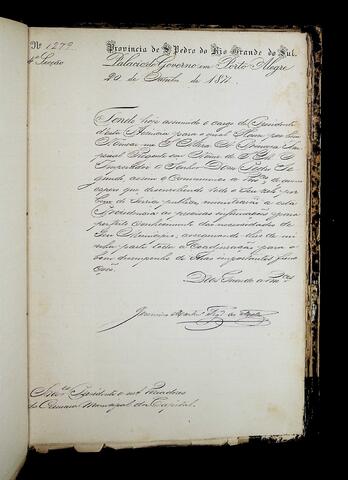 Nº 1279
4ª Secção
Provincia de S Pedro do Rio Grande do Sul.
Palacio do Governo em Porto Alegre
20 de de 1871.
Tendo hoje assumido o cargo de Presidente
d'esta Provincia para o qual Houve por bem
Nomear me S Altera A Princeza Im
perial Regente em Nome de S. M. O
Imperador o Senhor Dom Pedro Se
gundo, assim o Communico a Vmcês de quem
espero que desenvolvendo todo o seu zelo por
bem do Serviço publico, ministrarão a esta
Presidencia as precisas informações para
perfeito conhecimento das necessidades do
Seu Municipio, assegurando-lhes de mi
nha parte toda a Coadjuvação para o
bom desempenho de Suas importantes func
ções.
Deos Guarde a Vmcês
Snres Presidente e mais Vereadores
da Camara Municipal da Capital.